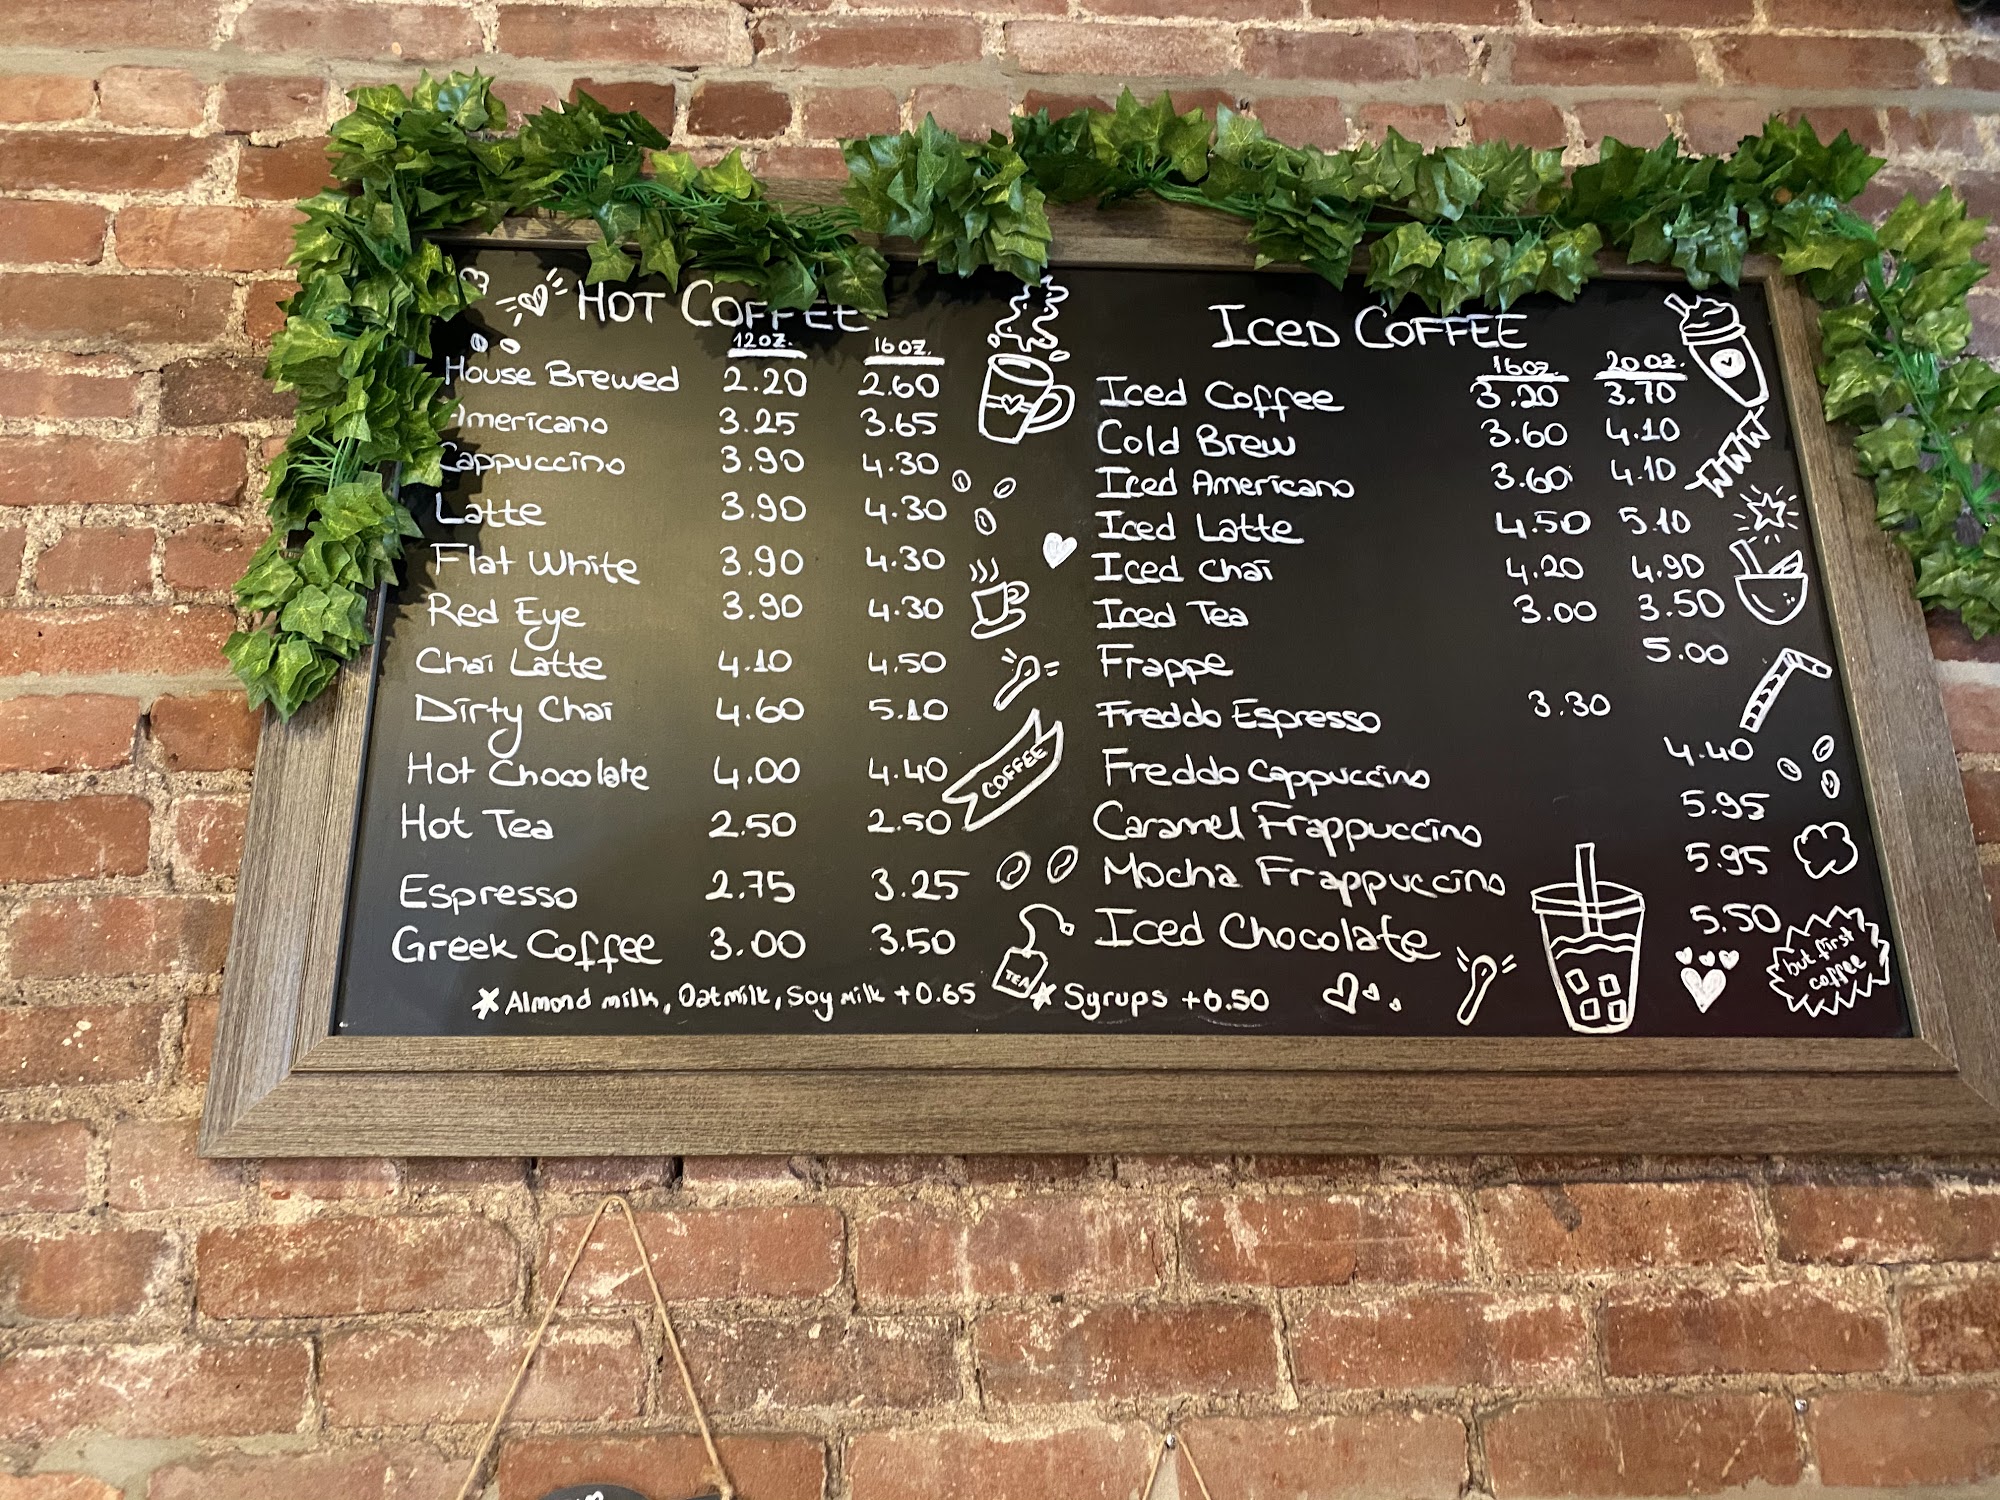 HOT COFFEE
12 OZ. 16 OZ.
House Brewed 2.20 2.60
Americano 3.25 3.65
Cappuccino 3.90 4.30
Latte 3.90 4.30
Flat White 3.90 4.30
Red Eye 3.90 4.30
Chai Latte 4.10 4.50
Dirty Chai 4.60 5.10
Hot Chocolate 4.00 4.40
Hot Tea 2.50 2.50
Espresso 2.75 3.25
Greek Coffee 3.00 3.50
* Almond milk, Oat milk, Soy milk +0.65
COFFEE
TEA
ICED COFFEE
16 oz. 20 oz.
Iced Coffee 3.20 3.70
Cold Brew 3.60 4.10
Iced Americano 3.60 4.10
Iced Latte 4.50 5.10
Iced Chai 4.20 4.90
Iced Tea 3.00 3.50
Frappe 5.00
Freddo Espresso 3.30
Freddo Cappuccino 4.40
Caramel Frappuccino 5.95
Mocha Frappuccino 5.95
Iced Chocolate 5.50
* Syrups +0.50
but first
coffee